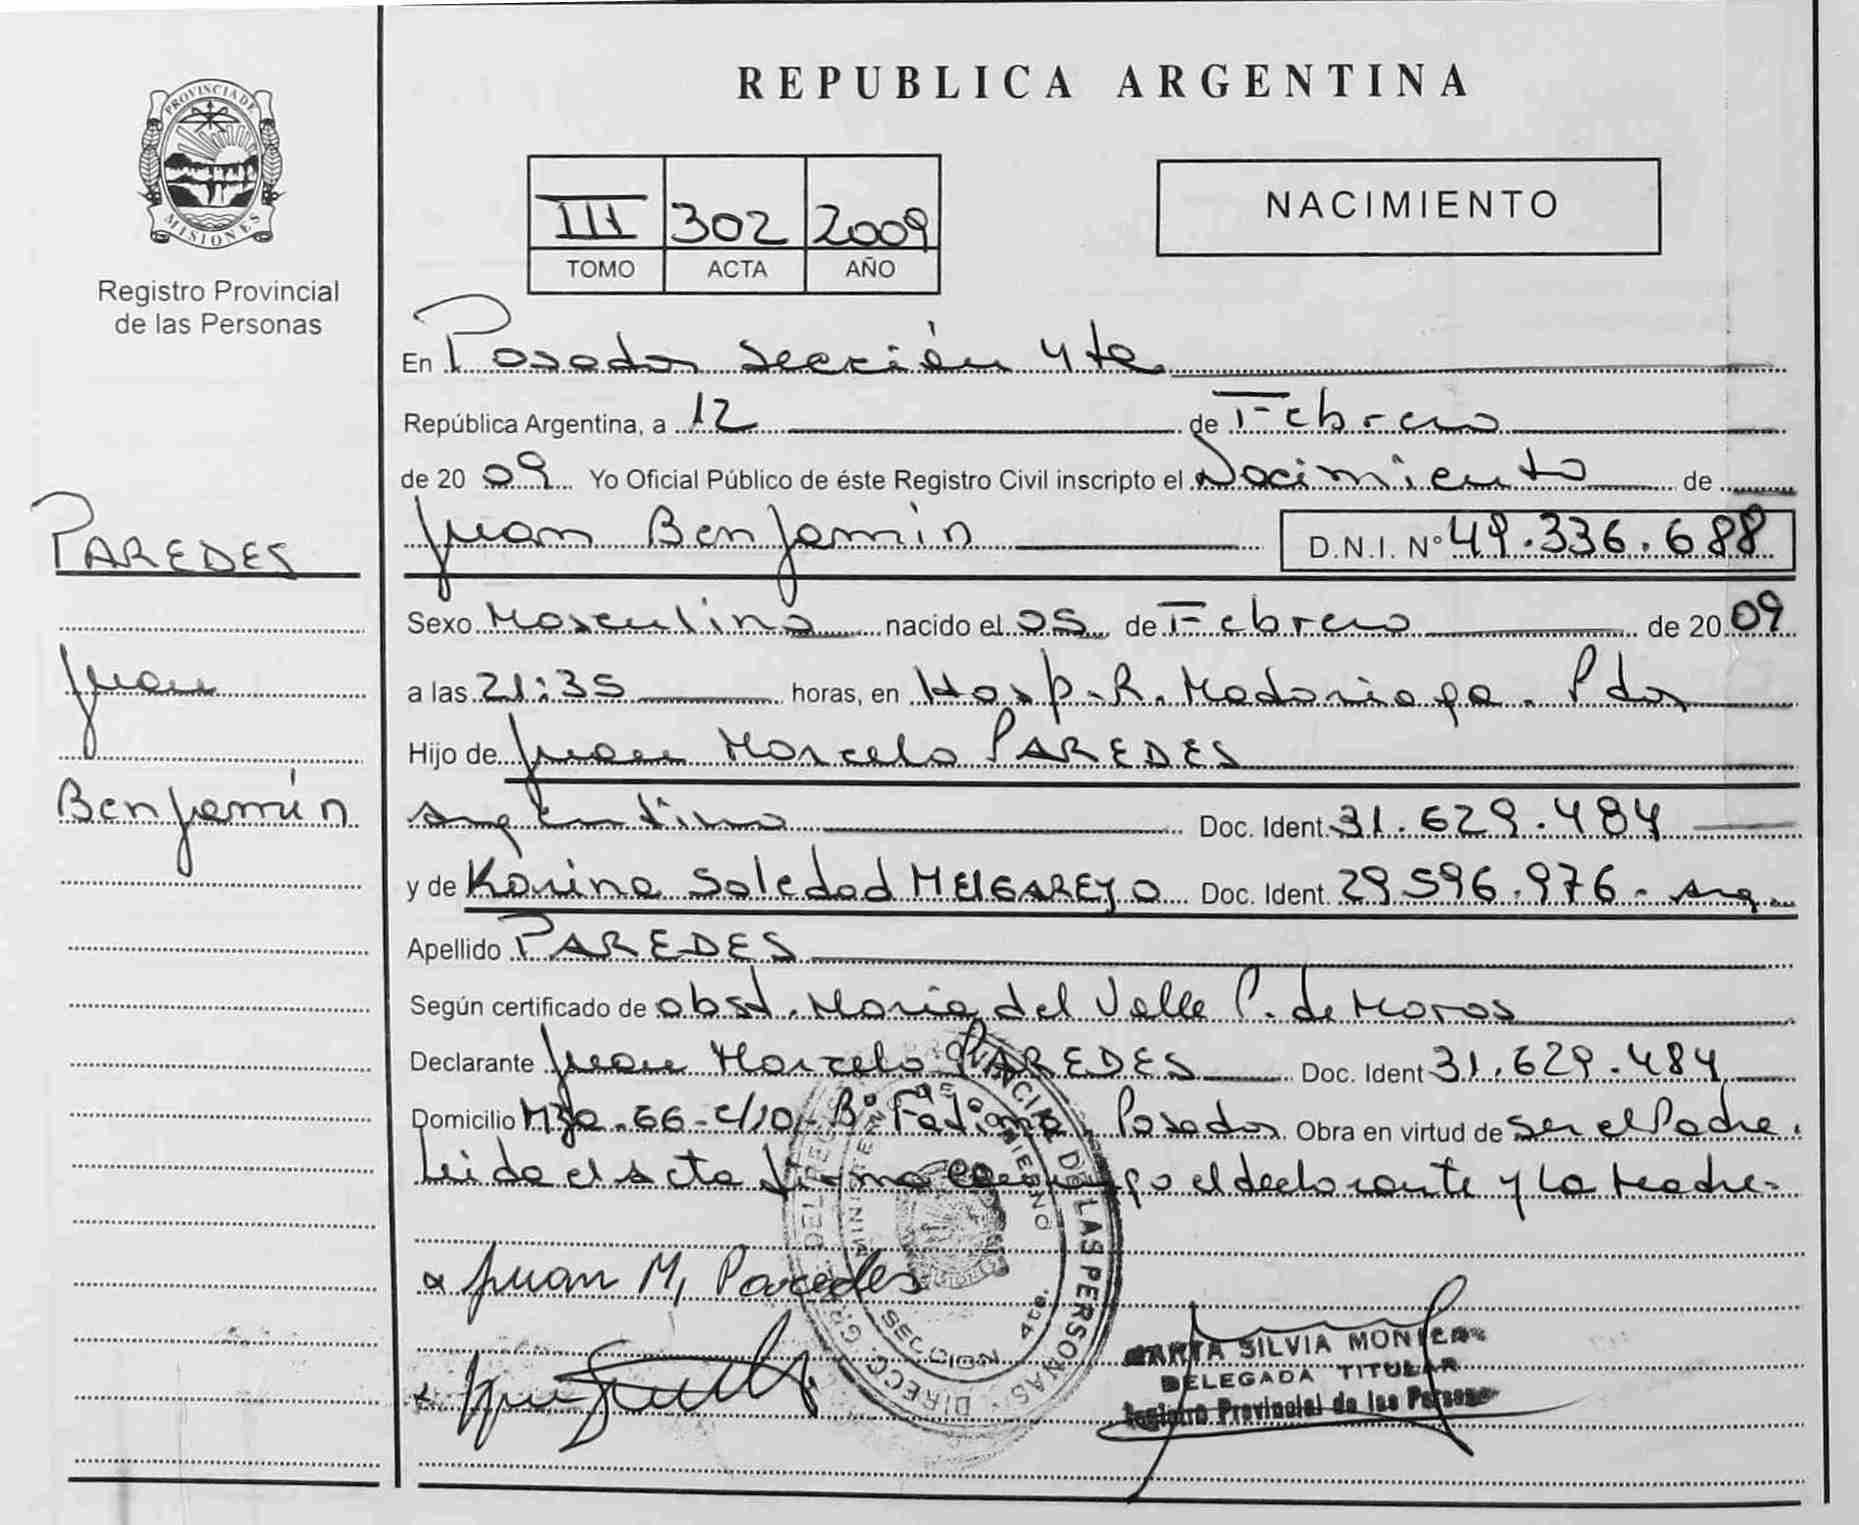 PROVINCIA DE
MISIONES
Registro Provincial
de las Personas
REPUBLICA ARGENTINA
III 302 2009
TOMO ACTA AÑO
NACIMIENTO
En Posadas sección 4ta
República Argentina, a 12 de Febrero
de 20 09 Yo Oficial Público de éste Registro Civil inscripto el Nacimiento de
Juan Benjamin D.N.I. Nº 49.336.688
PAREDES
Juan
Benjamín
Sexo Masculino nacido el 05 de Febrero de 20 09
a las 21:35 horas, en Hosp. R. Madariaga. Pdas
Hijo de Juan Marcelo PAREDES
Argentino Doc. Ident. 31.629.484
y de Karina Soledad MElGAREJO Doc. Ident. 29.596.976 - Arg.
Apellido PAREDES
Según certificado de obst. Maria del Valle P. de Moros
Declarante Juan Marcelo PAREDES Doc. Ident 31.629.484
Domicilio Mza. 66 - c/10 - Bº Fatima, Posadas Obra en virtud de ser el Padre.
Leida el acta firma conmigo el declarante y la Madre-
Juan M, Paredes
DE LAS PERSONAS
SECCION 4ta.
SILVIA MONICA
DELEGADA TITULAR
Registro Provincial de las Personas